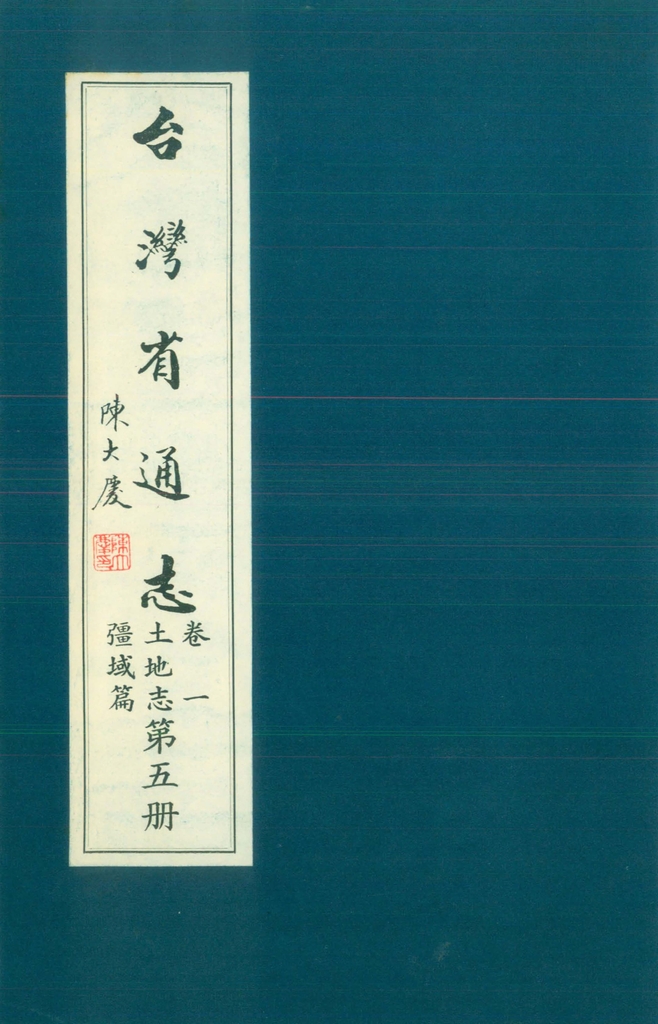 台灣省通志
卷一
土地志第五册
疆域篇
陳大慶